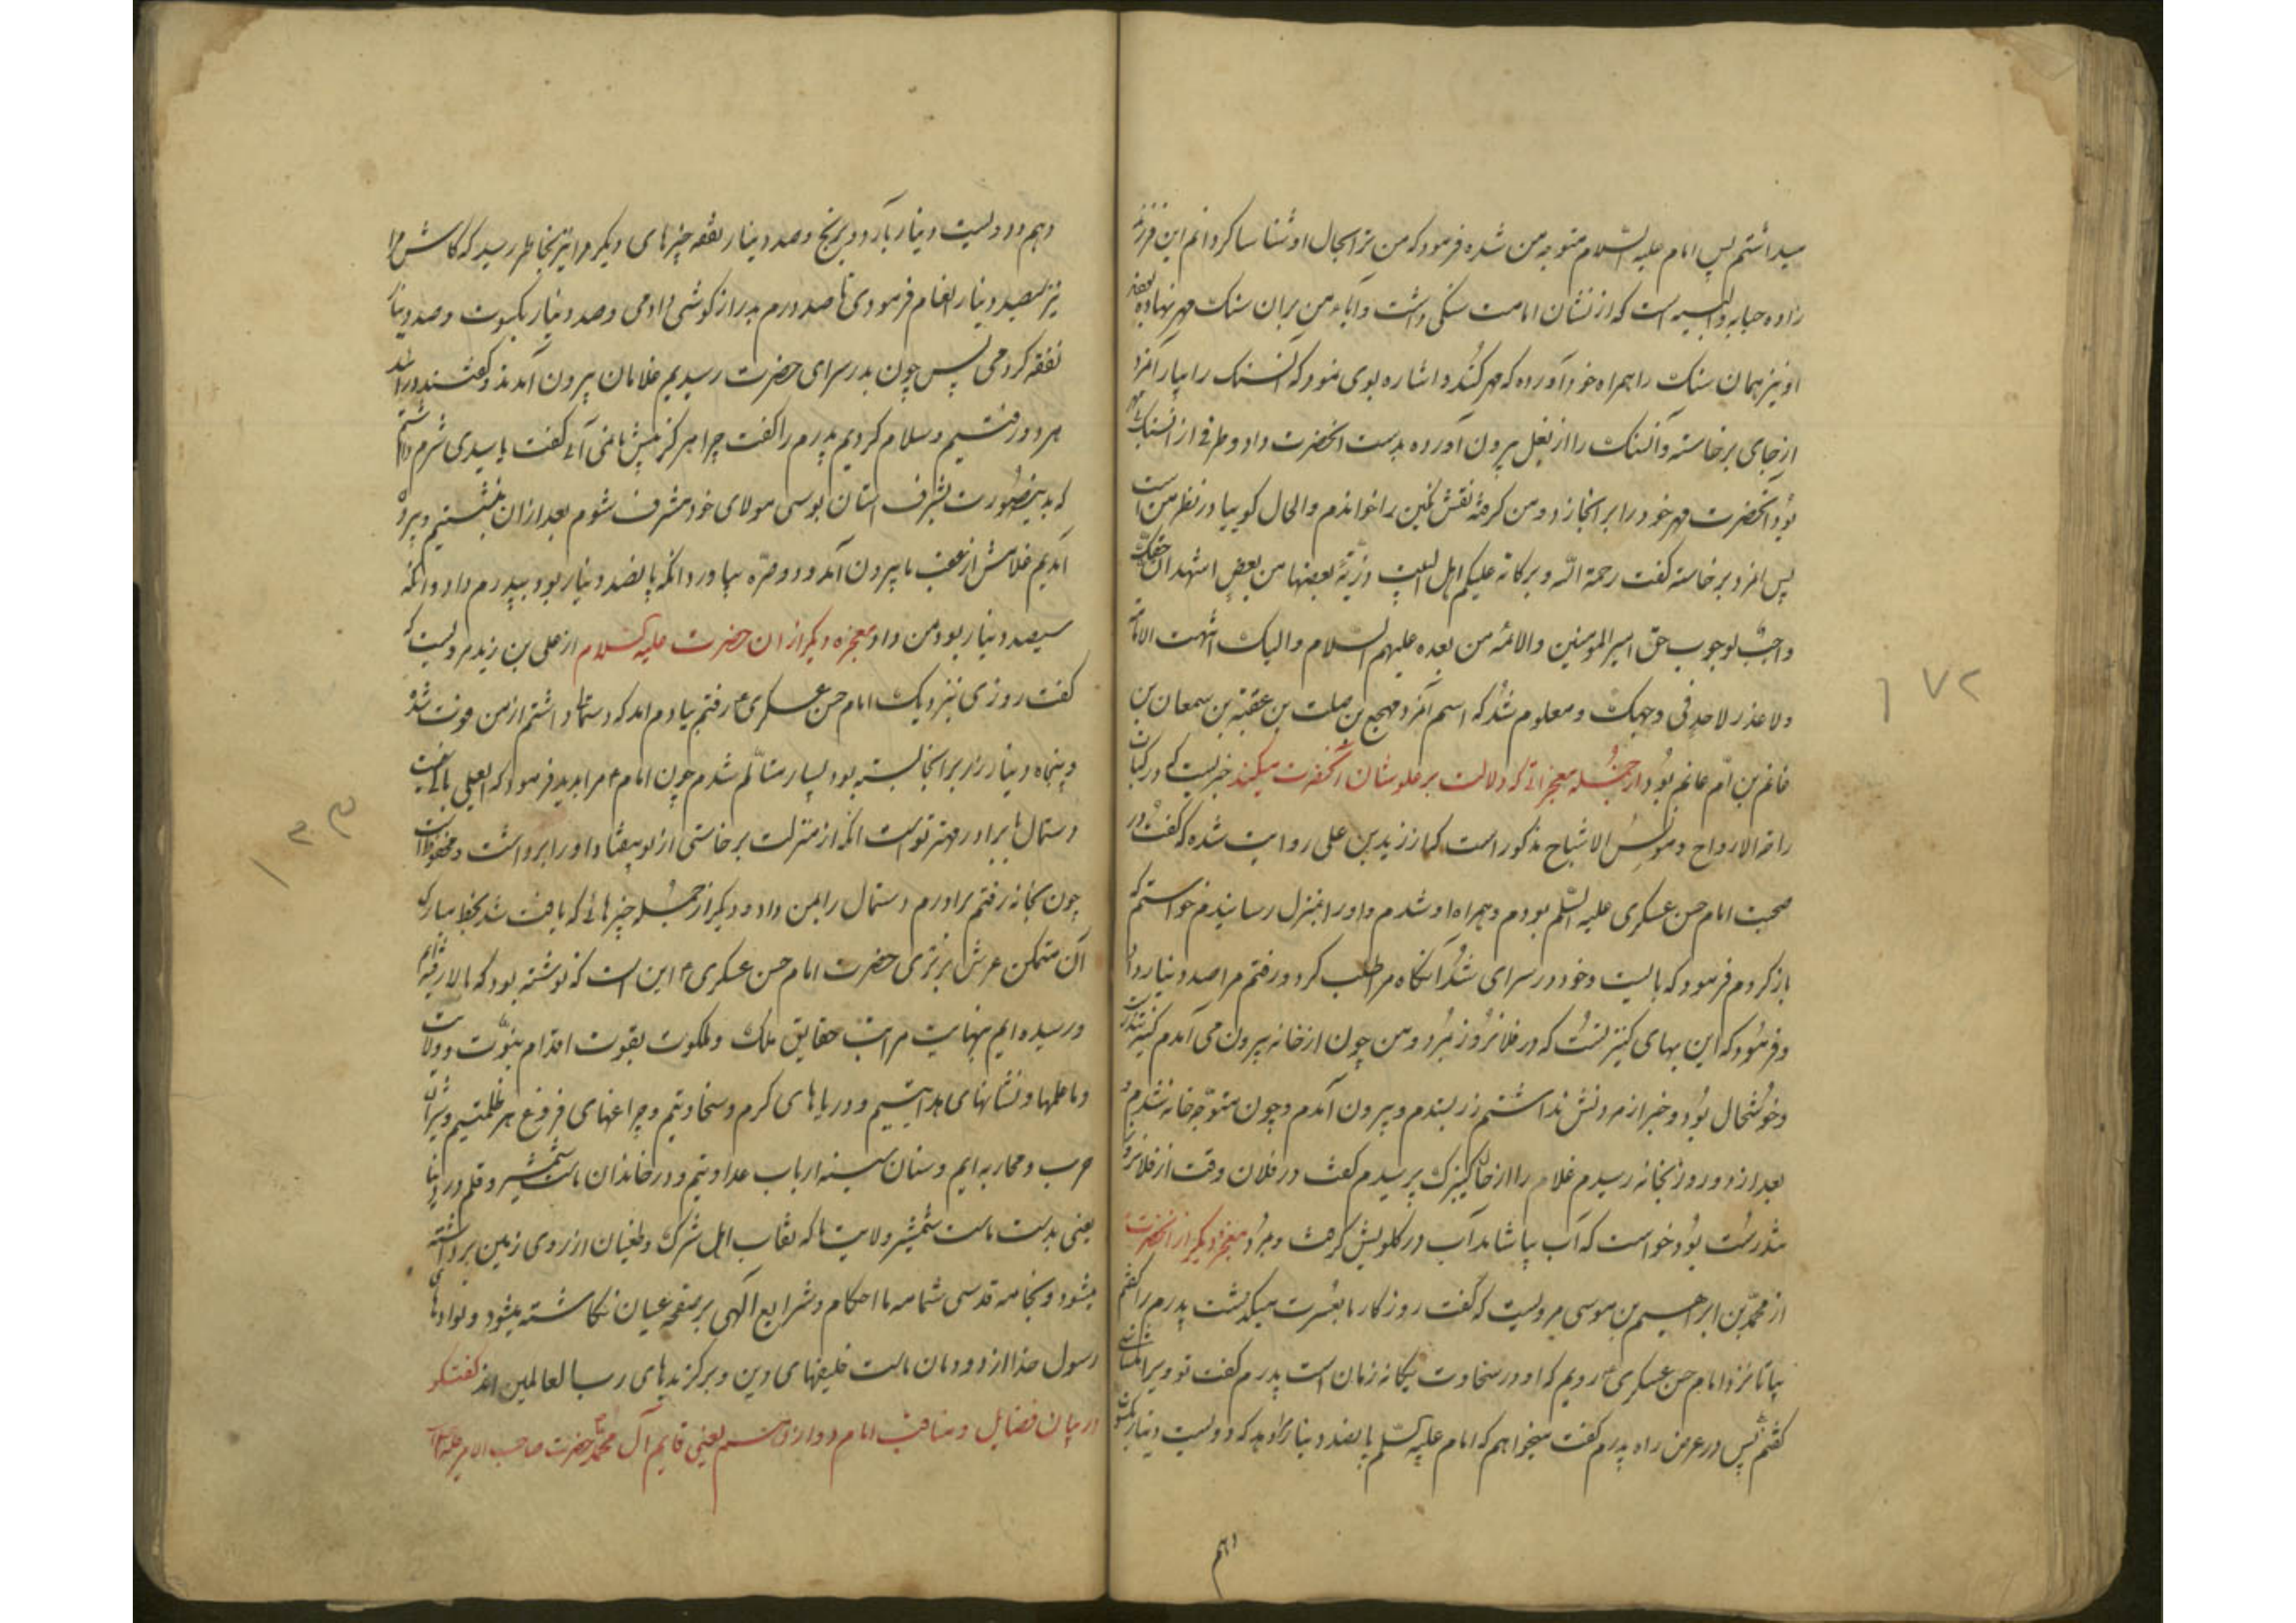 میداشتم پس امام علیه السلام متوجه من شده فرمود که من ترا بحال او شناسا کردانم این فرزند
زاده حبابه والبیه است که از نشان امامت سنکی داشت و آباء من بران سنک مهر نهاده
او نیز همان سنک را همراه خود آورده که مهر کنند و اشاره بوی نمود که آن سنک را بیار آمرد
از جای برخاسته و آن سنک را از بغل بیرون آورده بدست انحضرت داد و طرفی از ان سنک
بود انحضرت مهر خود را بر انجا زد و من کرفته نقش نکین را خواندم والحال کوییا در نظر من است
پس امرد برخاسته کفت رحمة الله و برکاته علیکم اهل البیت ذریة بعضها من بعض اشهد ان حقک
واجب لوجوب حق امیر المومنین والائمه من بعده علیهم السلام والیک انتهت الامامة
ولا عذر لاحد فی وجهک و معلوم شد که اسم آمرد مهجع بن صلت بن عقبة بن سمعان بن
غانم بن ام غانم بود از جمله معجزاتی که دلالت بر علو شان آنحضرت میکند خبریست که در کتاب
راحة الارواح و مونس الاشباح مذکور است که از زید بن علی روایت شده که کفت در
صحبت امام حسن عسکری علیه السلم بودم و همراه او شدم و او را بمنزل رسانیدم خواستم که
باز کردم فرمود که بایست و خود در سرای شد آنکاه مرا طلب کرد و رفتم مرا صد دینار داد
و فرمود که این بهای کنیز تست که در فلان روز بمرد و من چون از خانه بیرون می آمدم کنیز تندرست
و خوشحال بود و خبر از مردنش نداشتم زر بستدم و بیرون آمدم و چون متوجه خانه شدم
بعد از دو روز بخانه رسیدم غلام را از حال کنیزک پرسیدم کفت در فلان وقت از فلان روز
تندرست بود خواست که آب بیاشامد آب در کلویش کرفت و بمرد معجزه دیکر از انحضرت
از محمد بن ابراهیم بن موسی مرویست که کفت روزکار ما بعسرت میکذشت پدرم را کفتم
بیا تا نزد امام حسن عسکری ع رویم که او در سخاوت یکانه زمان است پدرم کفت تو ویرا
کفتم پس در عرض راه پدرم کفت میخواهم که امام علیه السلم پانصد دینار بمن دهد که دویست دینار بکسوت
دهم
دهم و دویست دینار بآرد و برنج و صد دینار نفقه چیزهای دیکر مرا نیز بخاطر رسید که کاش مرا
نیز سیصد دینار انعام فرمودی تا صد درم بدراز کوشی دادمی و صد دینار بکسوت و صد دینار
نفقه کردمی پس چون بدر سرای حضرت رسیدیم غلامان بیرون آمدند و کفتند در آیید
هر دو رفتیم و سلام کردیم پدرم را کفت چرا هرکز پیش ما نمی آئی کفت یا سیدی شرم داشتم
که بدینصورت بشرف آستان بوسی مولای خود مشرف شوم بعد از ان بنشستیم و بیرون
آمدیم غلامش از عقب ما بیرون آمد و دو صره بیاورد انکه پانصد دینار بود بپدرم داد و انکه
سیصد دینار بود بمن داد معجزه دیکر از ان حضرت علیه السلام از علی بن زید مرویست که
کفت روزی بنزدیک امام حسن عسکری ع رفتم بیادم امد که دستمالی داشتم از من فوت شده
و پنجاه دینار زر بر انجا بسته بود بسیار متالم شدم چون امام ع مرا بدید فرمود که ای علی
دستمال با برادر مهتر تو است انکه از منزلت برخاستی از تو بیفتاد او را برداشت و محفوظ است
چون بخانه رفتم برادرم دستمال را بمن داد و دیکر از جمله چیزهائی که یافت شد بخط مبارک
آن متمکن عرش برتری حضرت امام حسن عسکری ع این است که نوشته بود که بالا رفته ایم
و رسیده ایم بنهایت مراتب حقایق ملک و ملکوت بقوت اقدام نبوت و ولایت
و ما علمها و نشانهای هدایتیم و دریاهای کرم و سخاوتیم و چراغهای فروغ هر ظلمتیم و شیران
حرب و محاربه ایم و سنان سینه ارباب عداوتیم و در خاندان ماست شمشیر و قلم در دنیا
یعنی بدست ماست شمشیر ولایت تا که نقاب اهل شرک و طغیان از روی زمین برداشته
میشود و بخامه قدسی شمامه ما احکام و شرایع آلهی بر صفحه عیان نکاشته میشود و لوادهای
رسول خدا از دودمان ماست خلیفهای دین و برکزیدهای رب العالمین اند کفتکو
در بیان فضایل و مناقب امام دوازدهم یعنی قایم آل محمد حضرت صاحب الامر علیه السلام